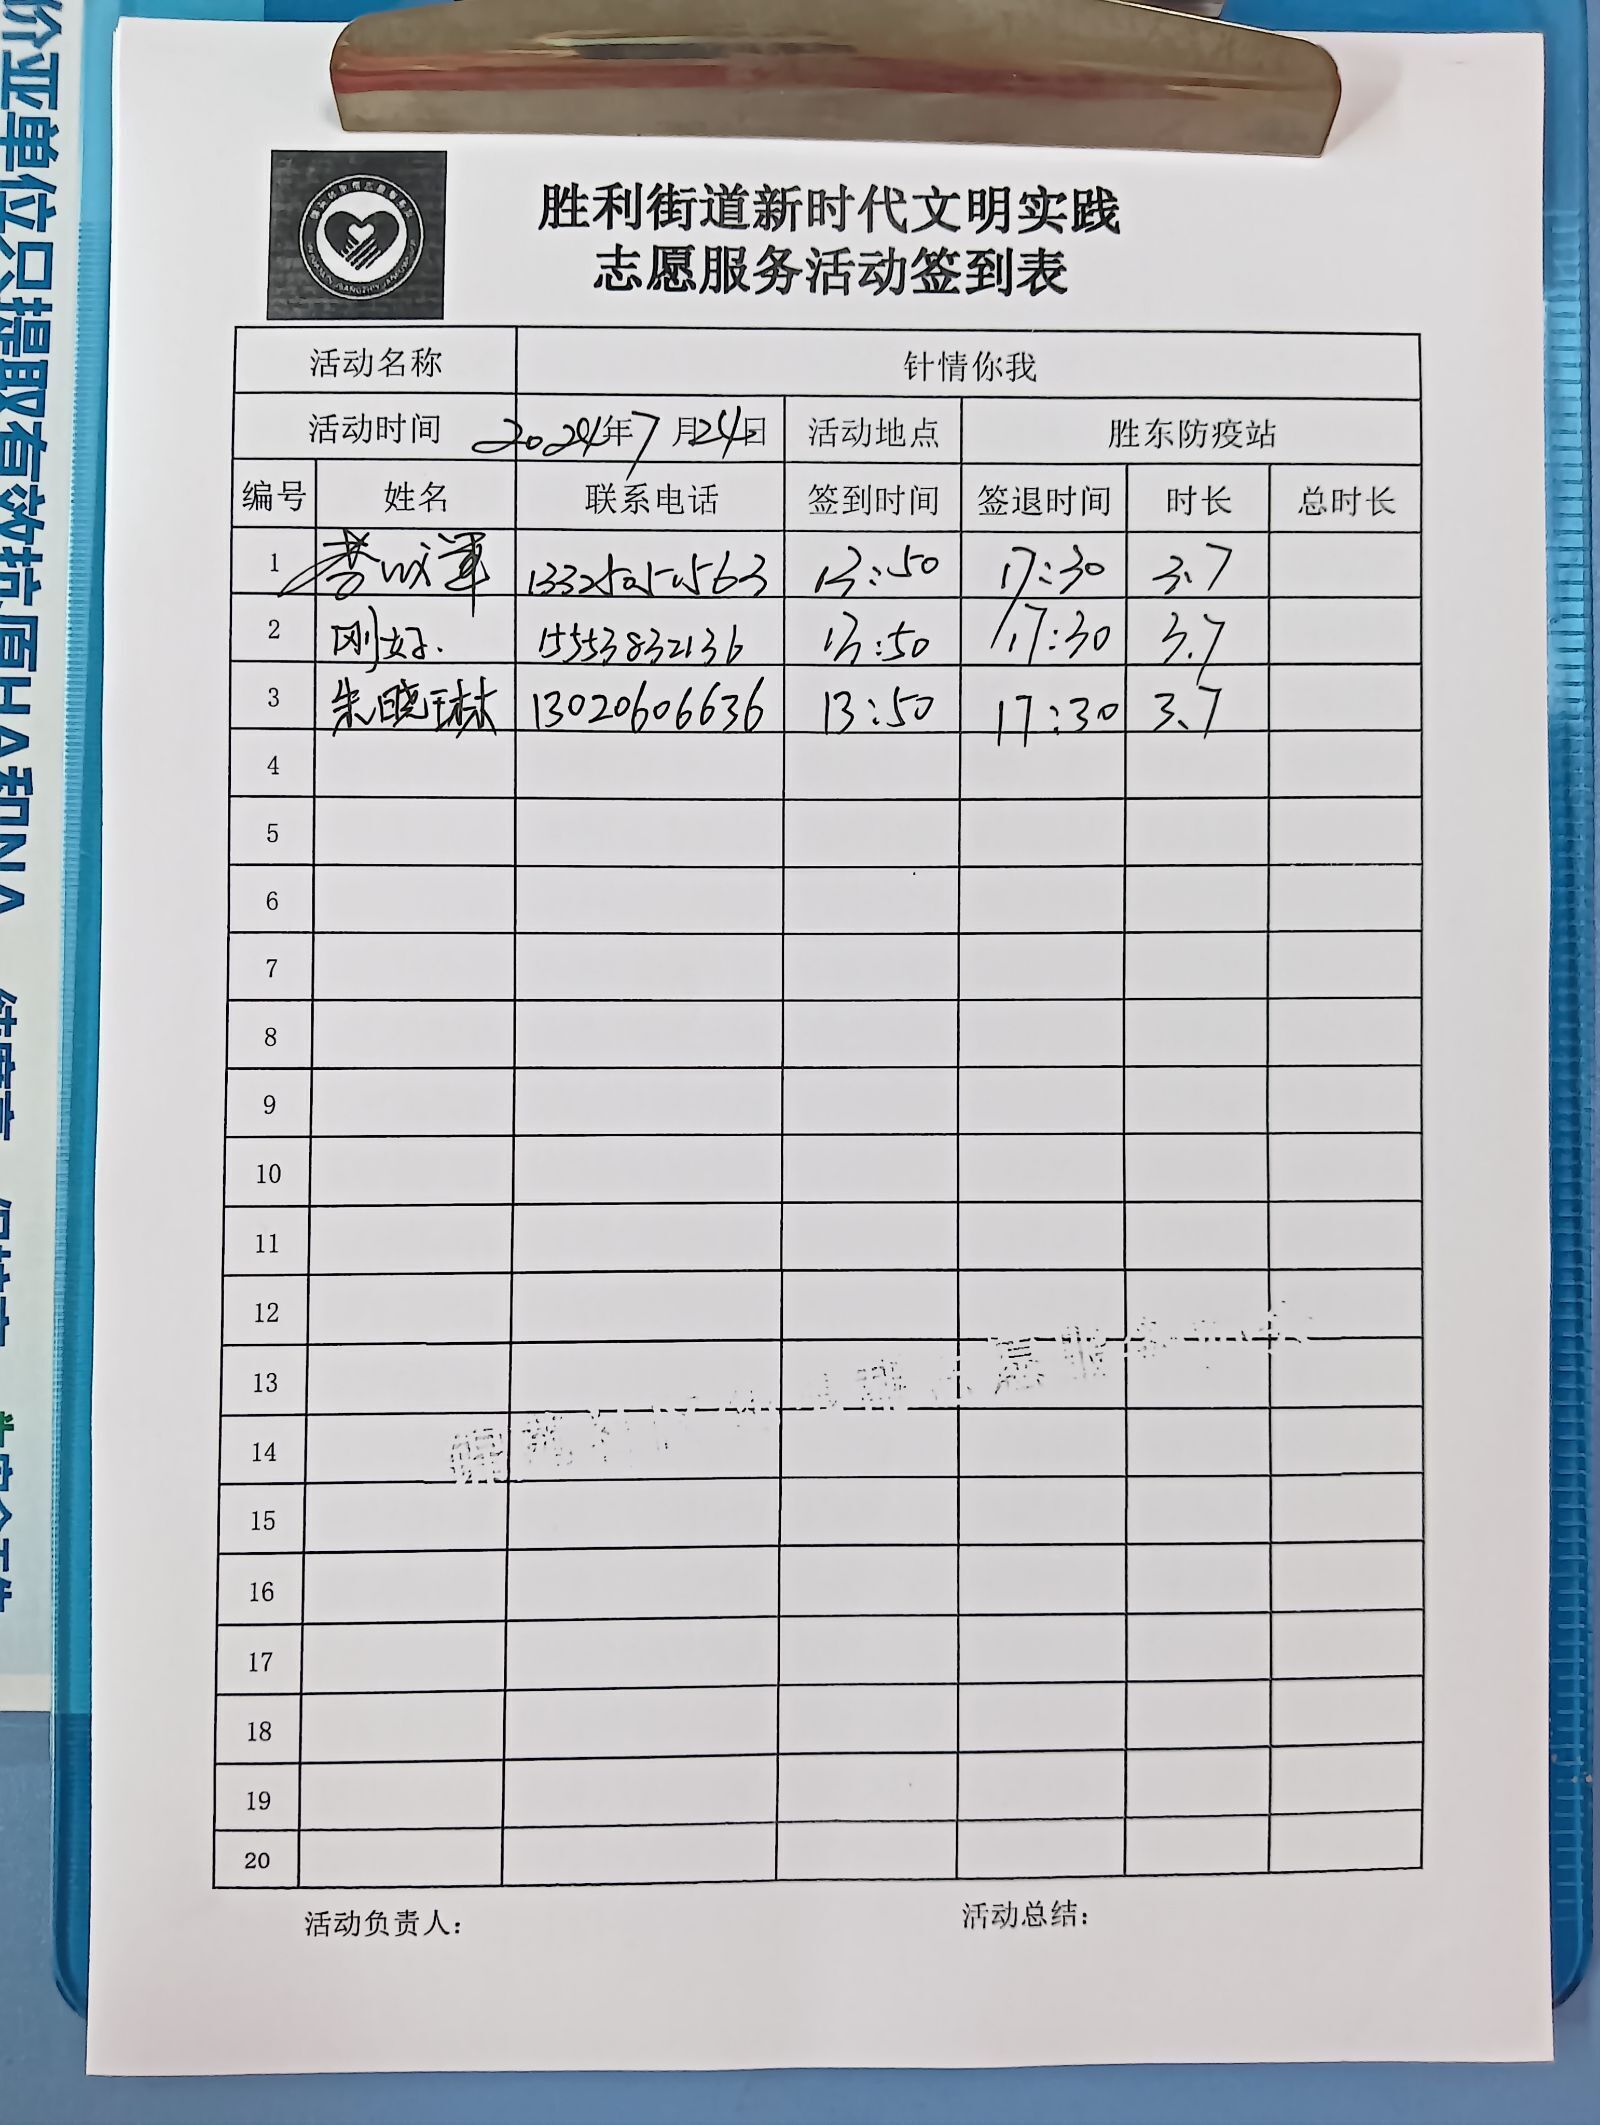 胜利街道新时代文明实践
志愿服务活动签到表
活动名称 针情你我
活动时间 2024年7月24日 活动地点 胜东防疫站
编号 姓名 联系电话 签到时间 签退时间 时长 总时长
1 13:50 17:30 3.7
2 刚好. 15553832136 13:50 17:30 3.7
3 朱晓琳 13020606636 13:50 17:30 3.7
4
5
6
7
8
9
10
11
12
13
14
15
16
17
18
19
20
活动负责人: 活动总结:
价亚单位只提取有效抗原HA和NA